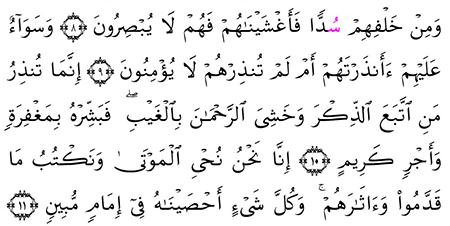 وَمِنْ خَلْفِهِمْ سُدًّا فَأَغْشَيْنَٰهُمْ فَهُمْ لَا يُبْصِرُونَ ﴿٨﴾ وَسَوَآءٌ
عَلَيْهِمْ ءَأَنذَرْتَهُمْ أَمْ لَمْ تُنذِرْهُمْ لَا يُؤْمِنُونَ ﴿٩﴾ إِنَّمَا تُنذِرُ
مَنِ ٱتَّبَعَ ٱلذِّكْرَ وَخَشِىَ ٱلرَّحْمَٰنَ بِٱلْغَيْبِ ۖ فَبَشِّرْهُ بِمَغْفِرَةٍ
وَأَجْرٍ كَرِيمٍ ﴿١٠﴾ إِنَّا نَحْنُ نُحْىِ ٱلْمَوْتَىٰ وَنَكْتُبُ مَا
قَدَّمُوا۟ وَءَاثَٰرَهُمْ ۚ وَكُلَّ شَىْءٍ أَحْصَيْنَٰهُ فِىٓ إِمَامٍ مُّبِينٍ ﴿١١﴾